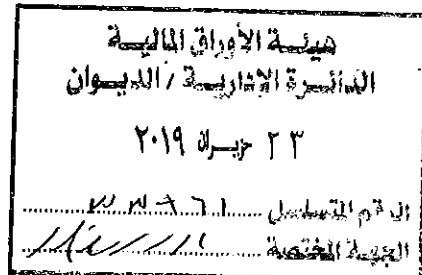 هيئة الأوراق المالية
الدائرة الإدارية / الديوان
٢٣ حزيران ٢٠١٩
الرقم المتسلسل
الجهة المختصة